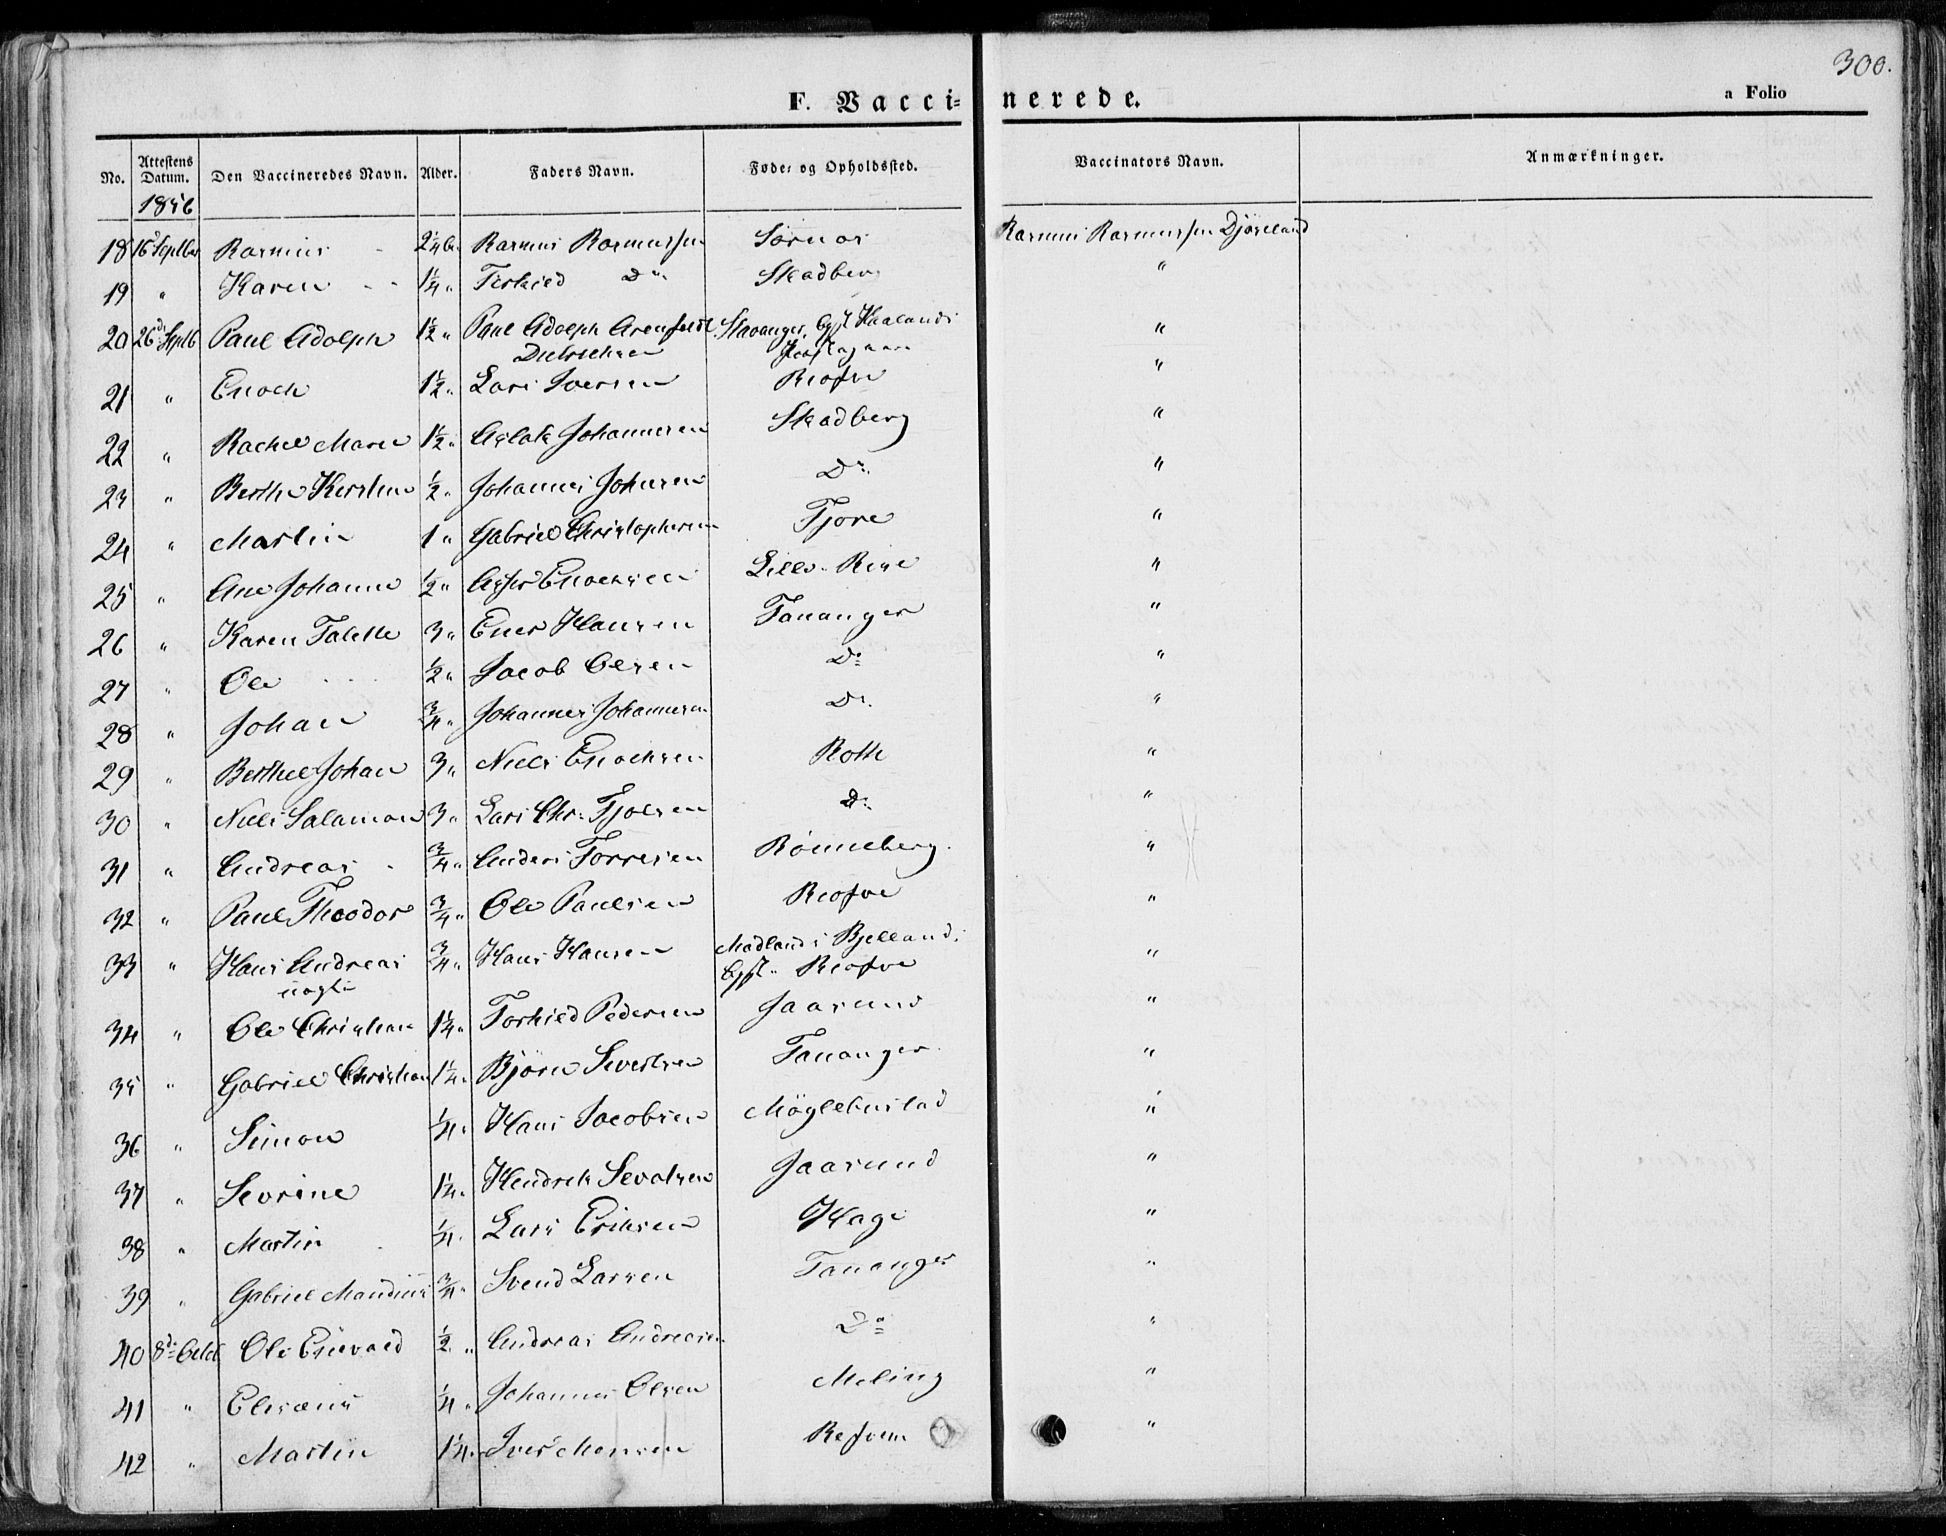 300.
F. Vaccinerede.
a Folio
No. Attestens Datum. Den Vaccineredes Navn. Alder. Faders Navn. Føde- og Opholdssted. Vaccinators Navn. Anmærkninger.
1846
18 16 Septbr Rasmus 2 1/4 Rasmus Rasmussen Sørnes Rasmus Rasmussen
19 " Karen 1 1/4 " Torkild Do Skadberg "
20 26d Septb Paul Adolph 1 1/2 " Paul Adolph Stavanger, "
21 " Enoch 1 1/2 " Lars Iversen "
22 " Rachel Marie 1 1/2 " Aslak Johannesen Skadberg "
23 " Berthe Kirstine 1/2 " Johannes Johnsen Do "
24 " Martin 1 " Gabriel Christophersen Tjore "
25 " Ane Johanne 1/2 " Enochsen "
26 " Karen Talette 3 " Hansen Tananger "
27 " Ole 1/2 " Jacob Olsen Do "
28 " Johan 3/4 " Johannes Johannesen Do "
29 " Berthel Johan 3 " Niels Enochsen Roth "
30 " Niels Salamon 3 " Lars Chr. Do "
31 " Andreas 3/4 " Anders Torresen Rönneberg "
32 " Paul Theodor 3/4 " Ole Paulsen "
33 " Hans Andreas 3/4 " Hans Hansen Madland i "
34 " Ole Christian 1 1/4 " Torkild Pedersen Jaasund "
35 " Gabriel Christian 1 1/4 " Björn Sivertsen Tananger "
36 " Simon 1/4 " Hans Jacobsen Möglebustad "
37 " Sevrine 1 1/4 " Hendrik Jaasund "
38 " Martin 1/4 " Lars Eriksen Hage "
39 " Gabriel Mandius 3/4 " Svend Larsen Tananger "
40 8d Octb Ole Enevald 1/2 " Andreas Andreasen Do "
41 " Elisæus 1/4 " Johannes Olsen Meling "
42 " Martin 1 1/4 " Iver Monsen "